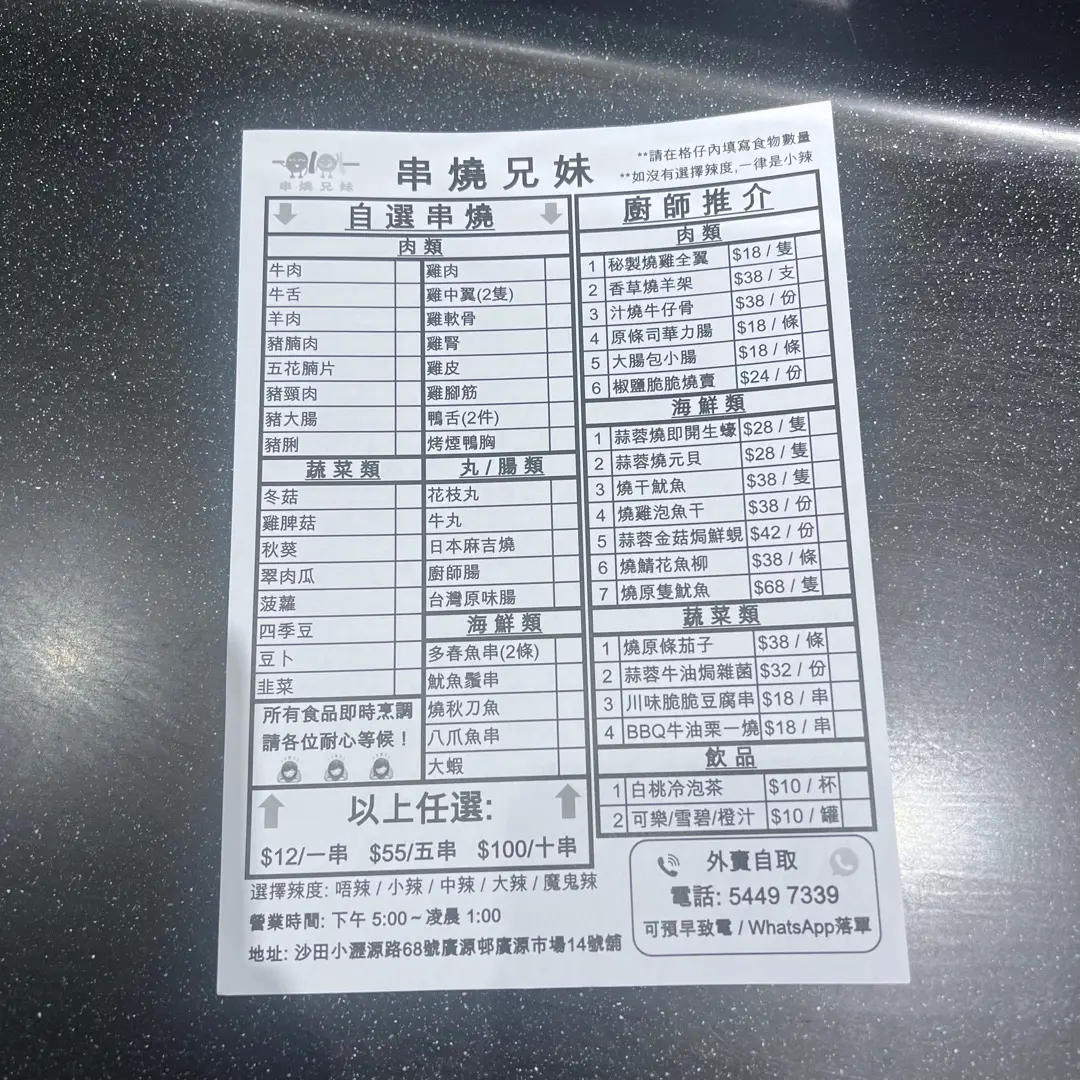 串燒兄妹
串燒兄妹
**請在格仔內填寫食物數量
**如沒有選擇辣度,一律是小辣
自選串燒
肉類
牛肉 雞肉
牛舌 雞中翼(2隻)
羊肉 雞軟骨
豬腩肉 雞腎
五花腩片 雞皮
豬頸肉 雞腳筋
豬大腸 鴨舌(2件)
豬脷 烤煙鴨胸
蔬菜類
冬菇
雞脾菇
秋葵
翠肉瓜
菠蘿
四季豆
豆卜
韭菜
所有食品即時烹調
請各位耐心等候！
丸/腸類
花枝丸
牛丸
日本麻吉燒
廚師腸
台灣原味腸
海鮮類
多春魚串(2條)
魷魚鬚串
燒秋刀魚
八爪魚串
大蝦
以上任選:
$12/一串 $55/五串 $100/十串
選擇辣度: 唔辣 / 小辣 / 中辣 / 大辣 / 魔鬼辣
營業時間: 下午 5:00 ~ 凌晨 1:00
地址: 沙田小瀝源路68號廣源邨廣源市場14號舖
廚師推介
肉類
1 秘製燒雞全翼 $18 / 隻
2 香草燒羊架 $38 / 支
3 汁燒牛仔骨 $38 / 份
4 原條司華力腸 $18 / 條
5 大腸包小腸 $18 / 條
6 椒鹽脆脆燒賣 $24 / 份
海鮮類
1 蒜蓉燒即開生蠔 $28 / 隻
2 蒜蓉燒元貝 $28 / 隻
3 燒干魷魚 $38 / 隻
4 燒雞泡魚干 $38 / 份
5 蒜蓉金菇焗鮮蜆 $42 / 份
6 燒鯖花魚柳 $38 / 條
7 燒原隻魷魚 $68 / 隻
蔬菜類
1 燒原條茄子 $38 / 條
2 蒜蓉牛油焗雜菌 $32 / 份
3 川味脆脆豆腐串 $18 / 串
4 BBQ牛油栗一燒 $18 / 串
飲品
1 白桃冷泡茶 $10 / 杯
2 可樂/雪碧/橙汁 $10 / 罐
外賣自取
電話: 5449 7339
可預早致電 / WhatsApp落單